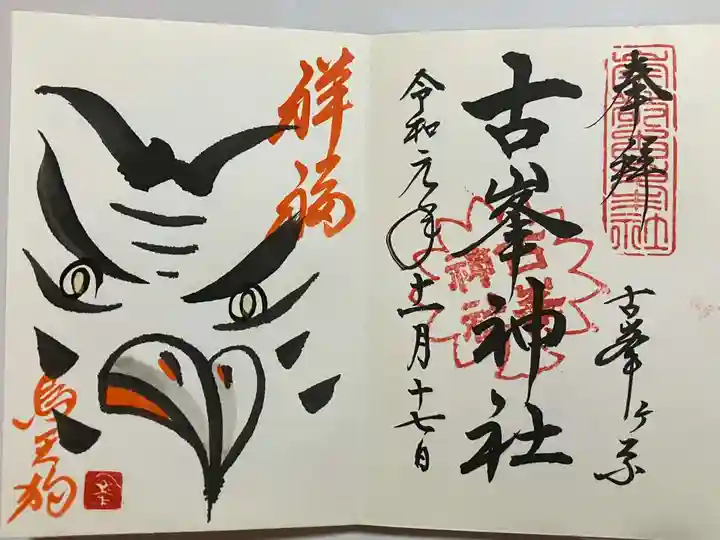 奉拝
古峯ヶ原
古峯神社
令和元年十一月十七日
祥福
烏天狗